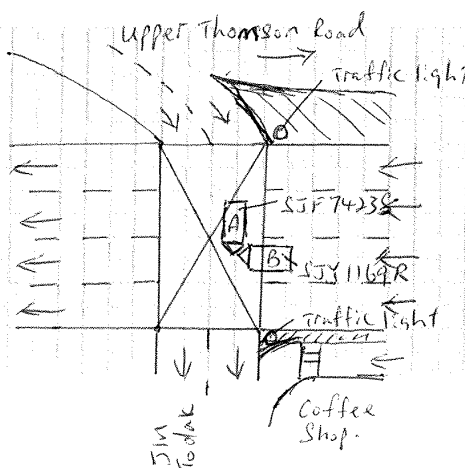 Upper Thomson Road
Traffic light
SJF7423S
A
B
SJY1169R
Traffic light
Jln
Todak
Coffee
Shop.